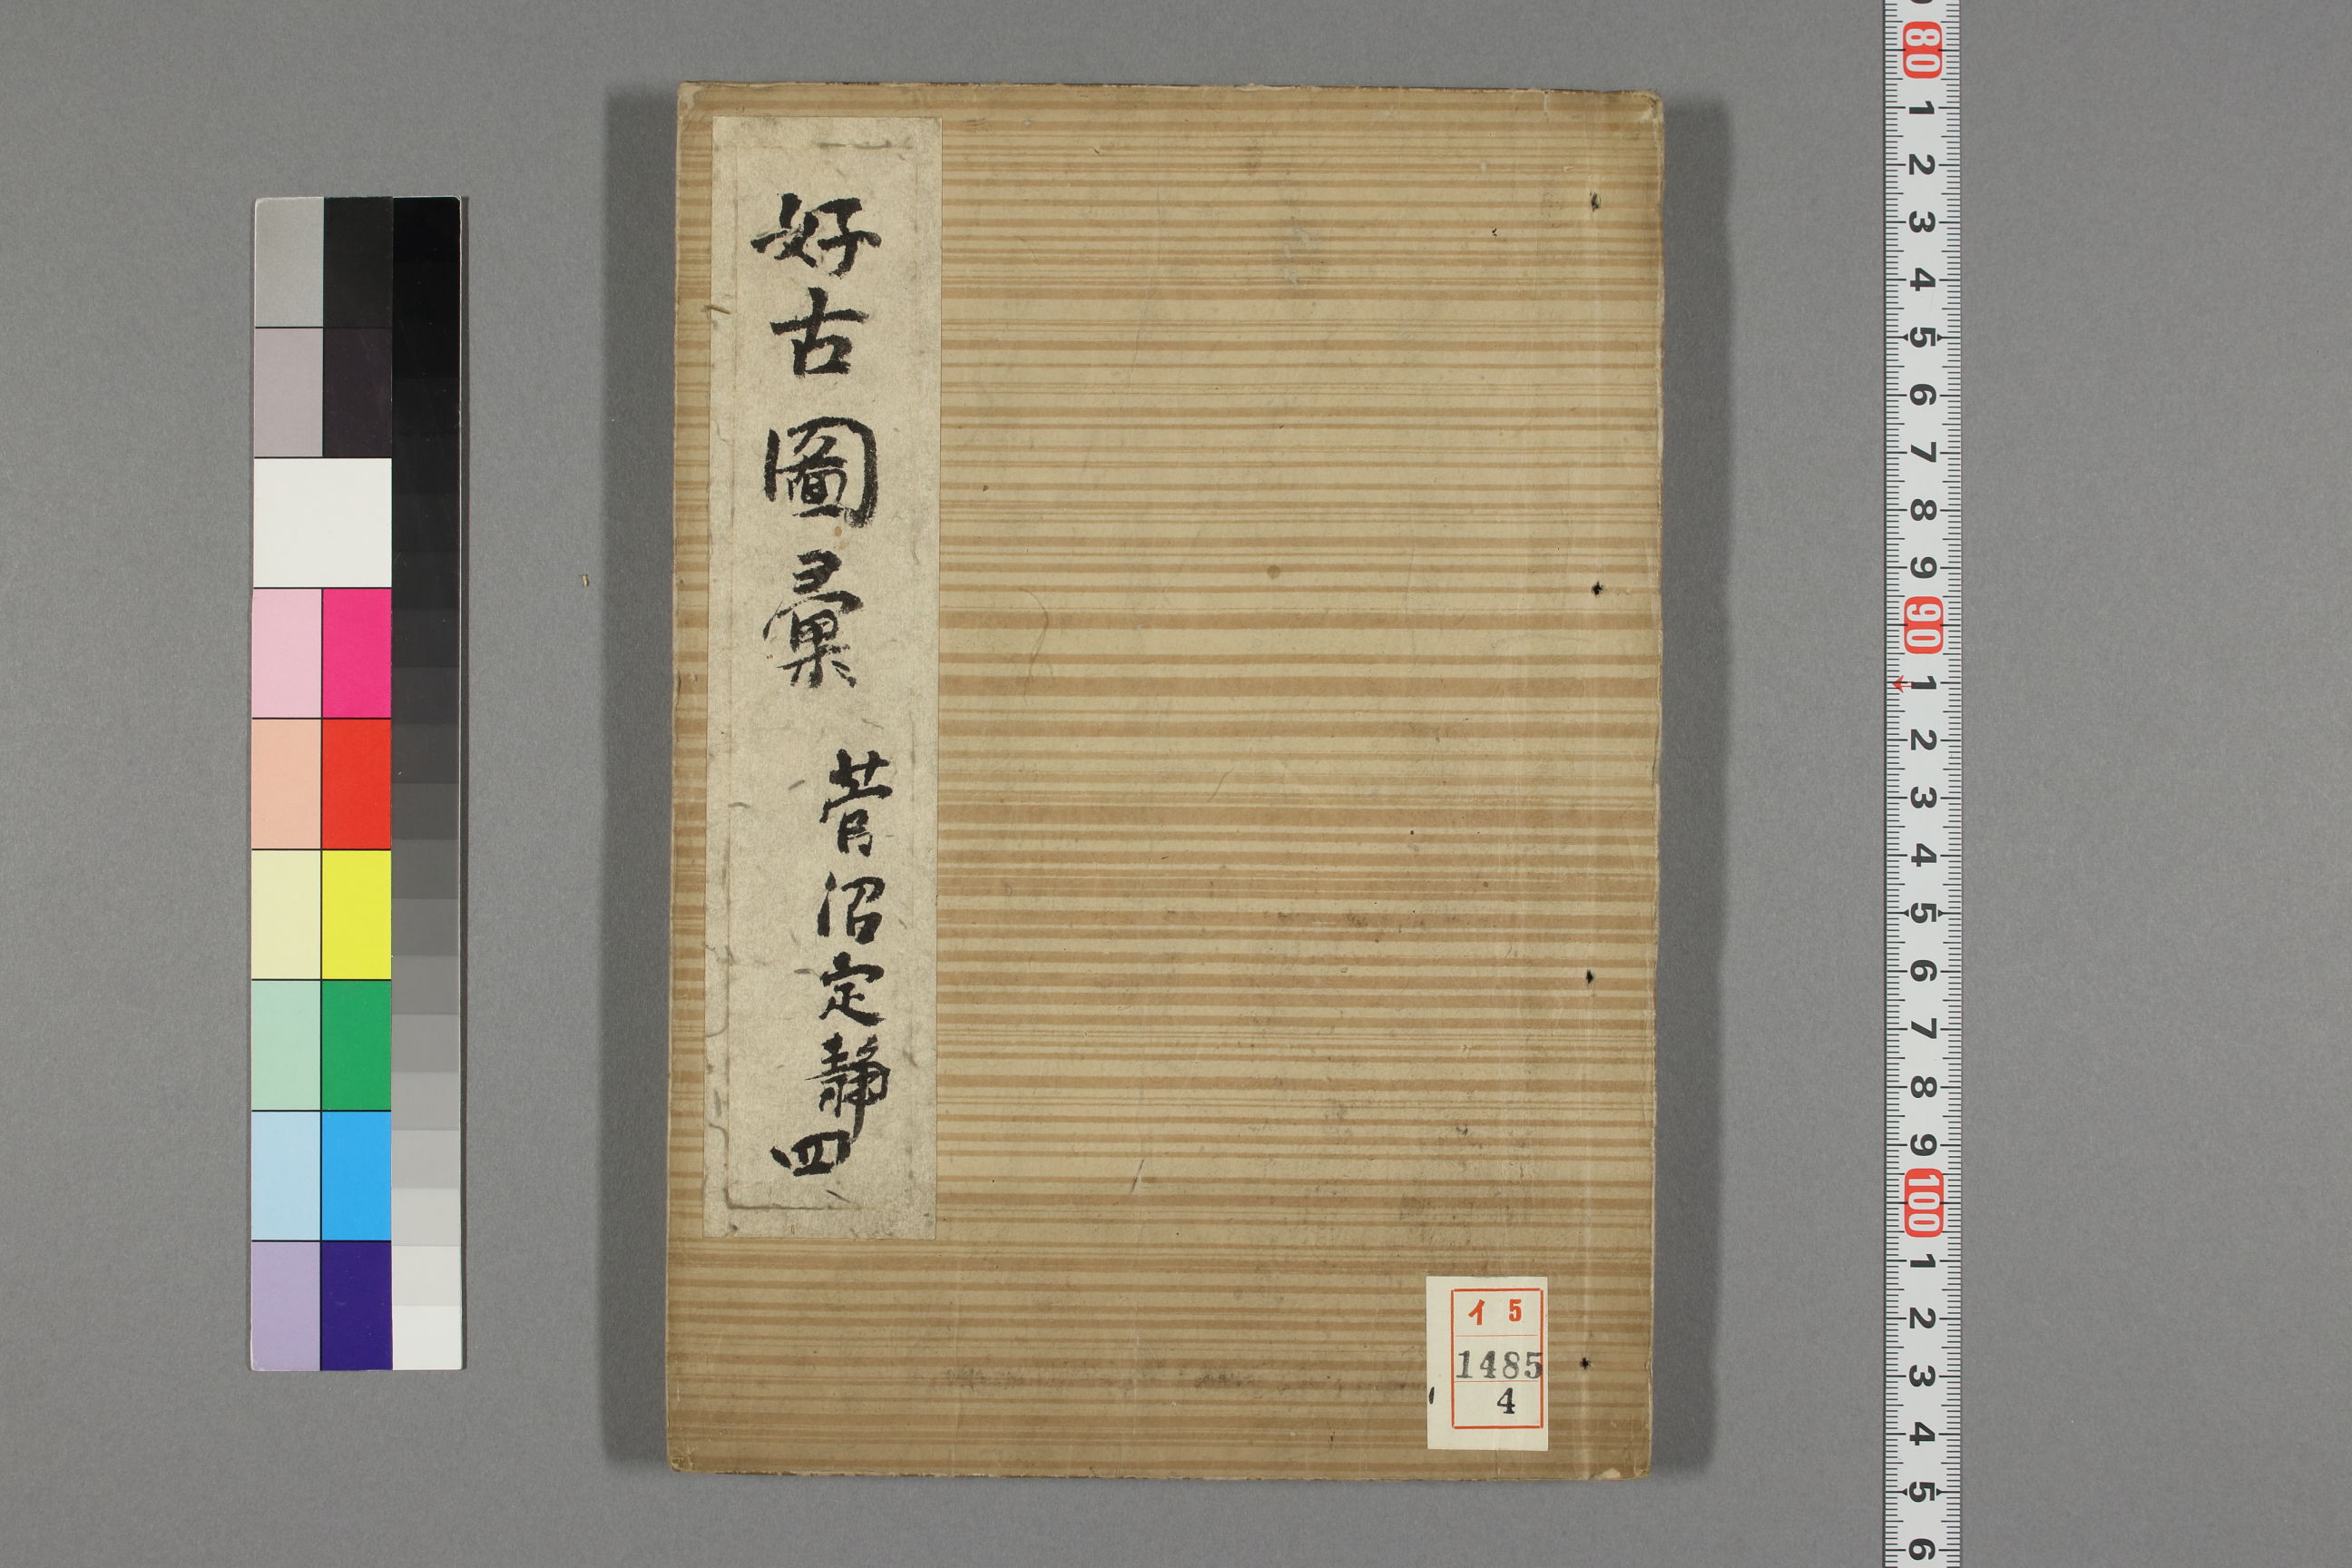 好古圖彙
菅沼定静
四
イ 5
1485
4
80
1
2
3
4
5
6
7
8
9
90
1
2
3
4
5
6
7
8
9
100
1
2
3
4
5
6